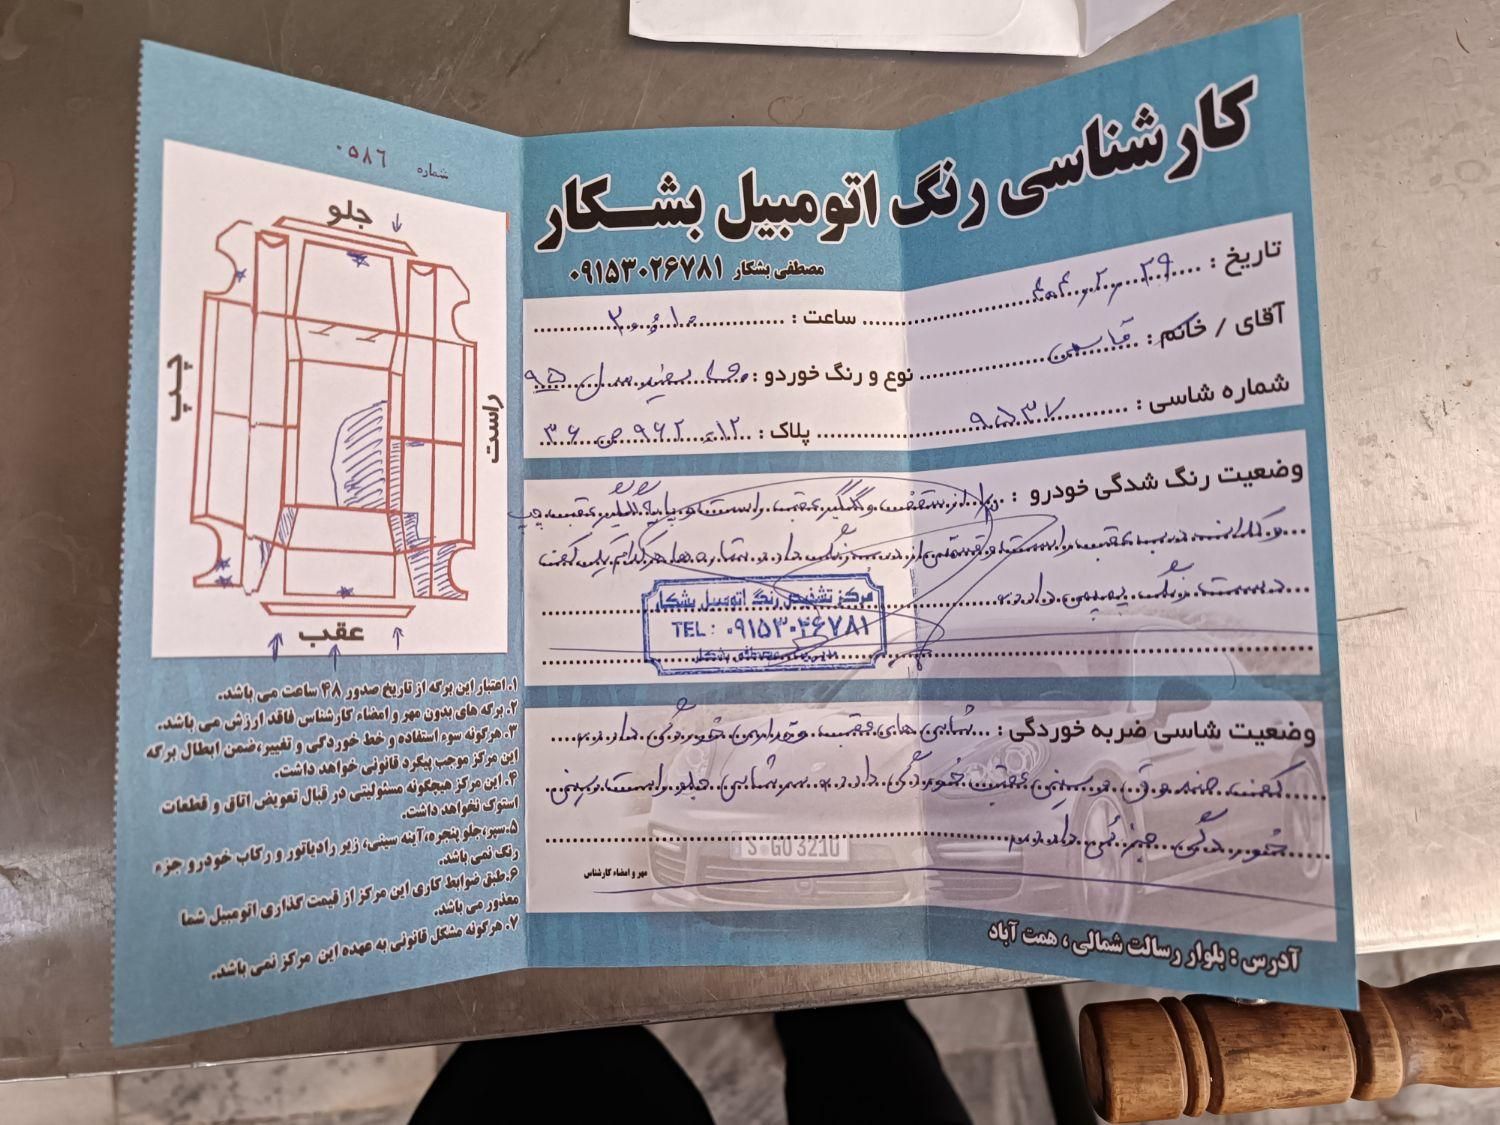 کارشناسی رنگ اتومبیل بشکار
مصطفی بشکار ۰۹۱۵۳۰۲۶۷۸۱
تاریخ :
ساعت :
آقای / خانم : قاسمی
نوع و رنگ خوردو : سفید مدل ۹۵
شماره شاسی : ۹۵۳۷
پلاک : ۱۲ ۹۶۲ ص ۳۶
وضعیت رنگ شدگی خودرو : سقف و گلگیر عقب راست و پایه گلگیر عقب چپ
درب عقب راست و قسمتی از رنگ دارد ستاره ها هر کدام یک کف
دست رنگ دارد
مرکز تشخیص رنگ اتومبیل بشکار
TEL: ۰۹۱۵۳۰۲۶۷۸۱
وضعیت شاسی ضربه خوردگی : شاسی های عقب خوردگی دارد
کف صندوق و سینی عقب خوردگی دارد سر شاسی جلو راست سینی
خوردگی جزئی دارد
S GO 3210
مهر و امضاء کارشناس
آدرس : بلوار رسالت شمالی ، همت آباد
شماره ۰۵۸۶
جلو
چپ
راست
عقب
۱. اعتبار این برگه از تاریخ صدور ۴۸ ساعت می باشد.
۲. برگه های بدون مهر و امضاء کارشناس فاقد ارزش می باشد.
۳. هرگونه سوء استفاده و خط خوردگی و تغییر،ضمن ابطال برگه
این مرکز موجب پیگرد قانونی خواهد داشت.
۴. این مرکز هیچگونه مسئولیتی در قبال تعویض اتاق و قطعات
استوک نخواهد داشت.
۵.سپر،جلو پنجره،آینه سینی، زیر رادیاتور و رکاب خودرو جزء
رنگ نمی باشد.
۶.طبق ضوابط کاری این مرکز از قیمت گذاری اتومبیل شما
معذور می باشد.
۷. هرگونه مشکل قانونی به عهده این مرکز نمی باشد.